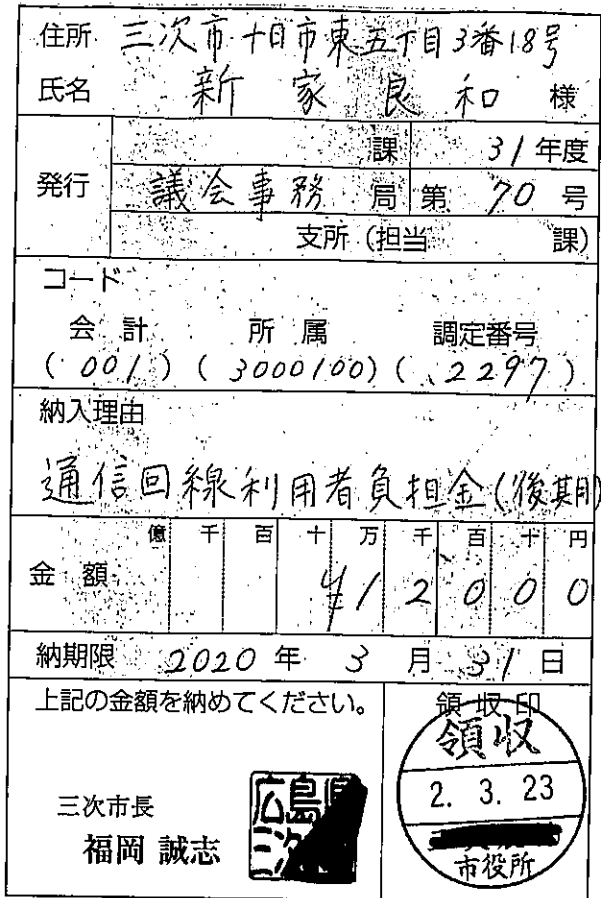 住所 三次市十日市東五丁目3番18号
氏名 新家良和 様
課 31年度
発行 議会事務局 第 70 号
支所(担当 課)
コード
会計 所属 調定番号
(001) (3000100) (2297)
納入理由
通信回線利用者負担金(後期)
億 千 百 十 万 千 百 十 円
金額 ¥12000
納期限 2020年3月31日
上記の金額を納めてください。
領収印
領収
2. 3. 23
市役所
三次市長
福岡 誠志
広島
三次